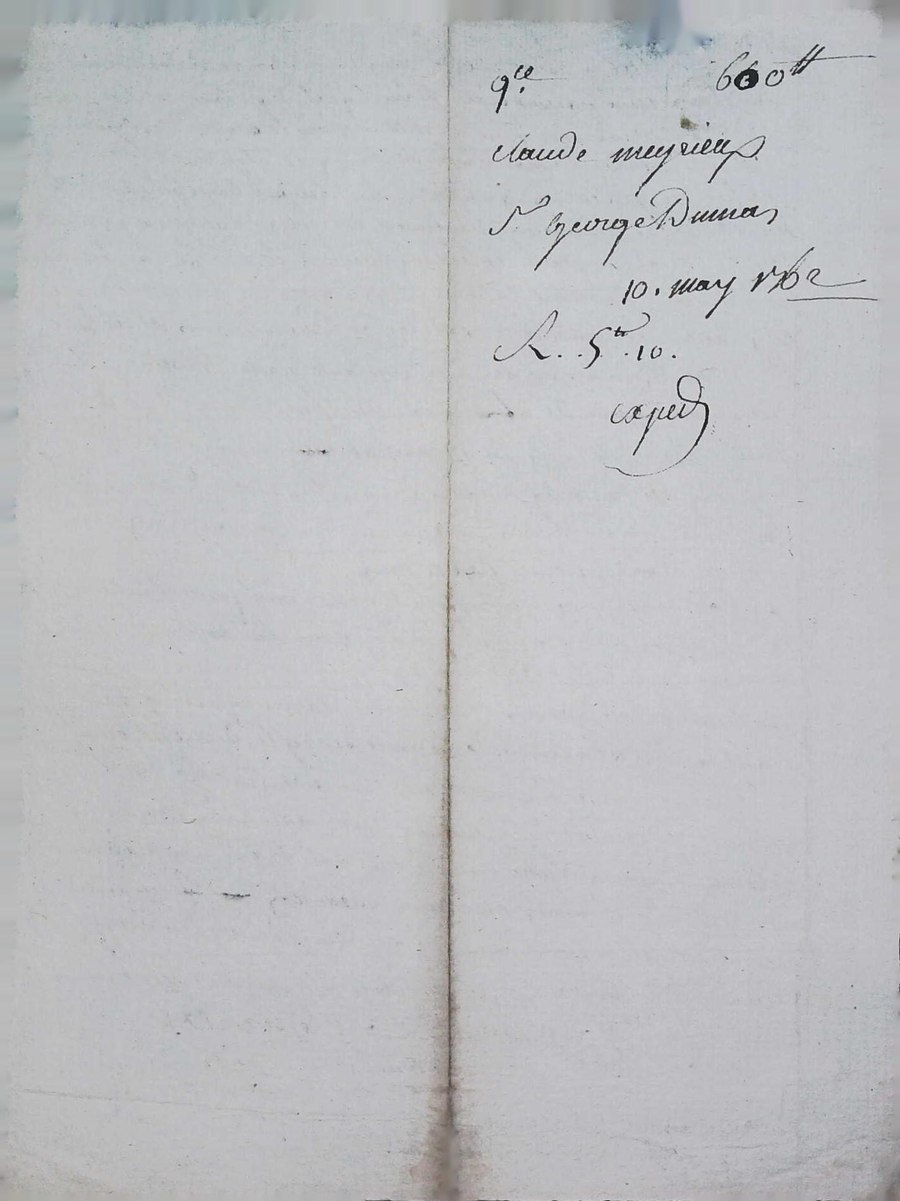 qce 600tt
claude meyrieux
Sr george Dumas
10. may 1762
R. . 5tt. 10.
exped